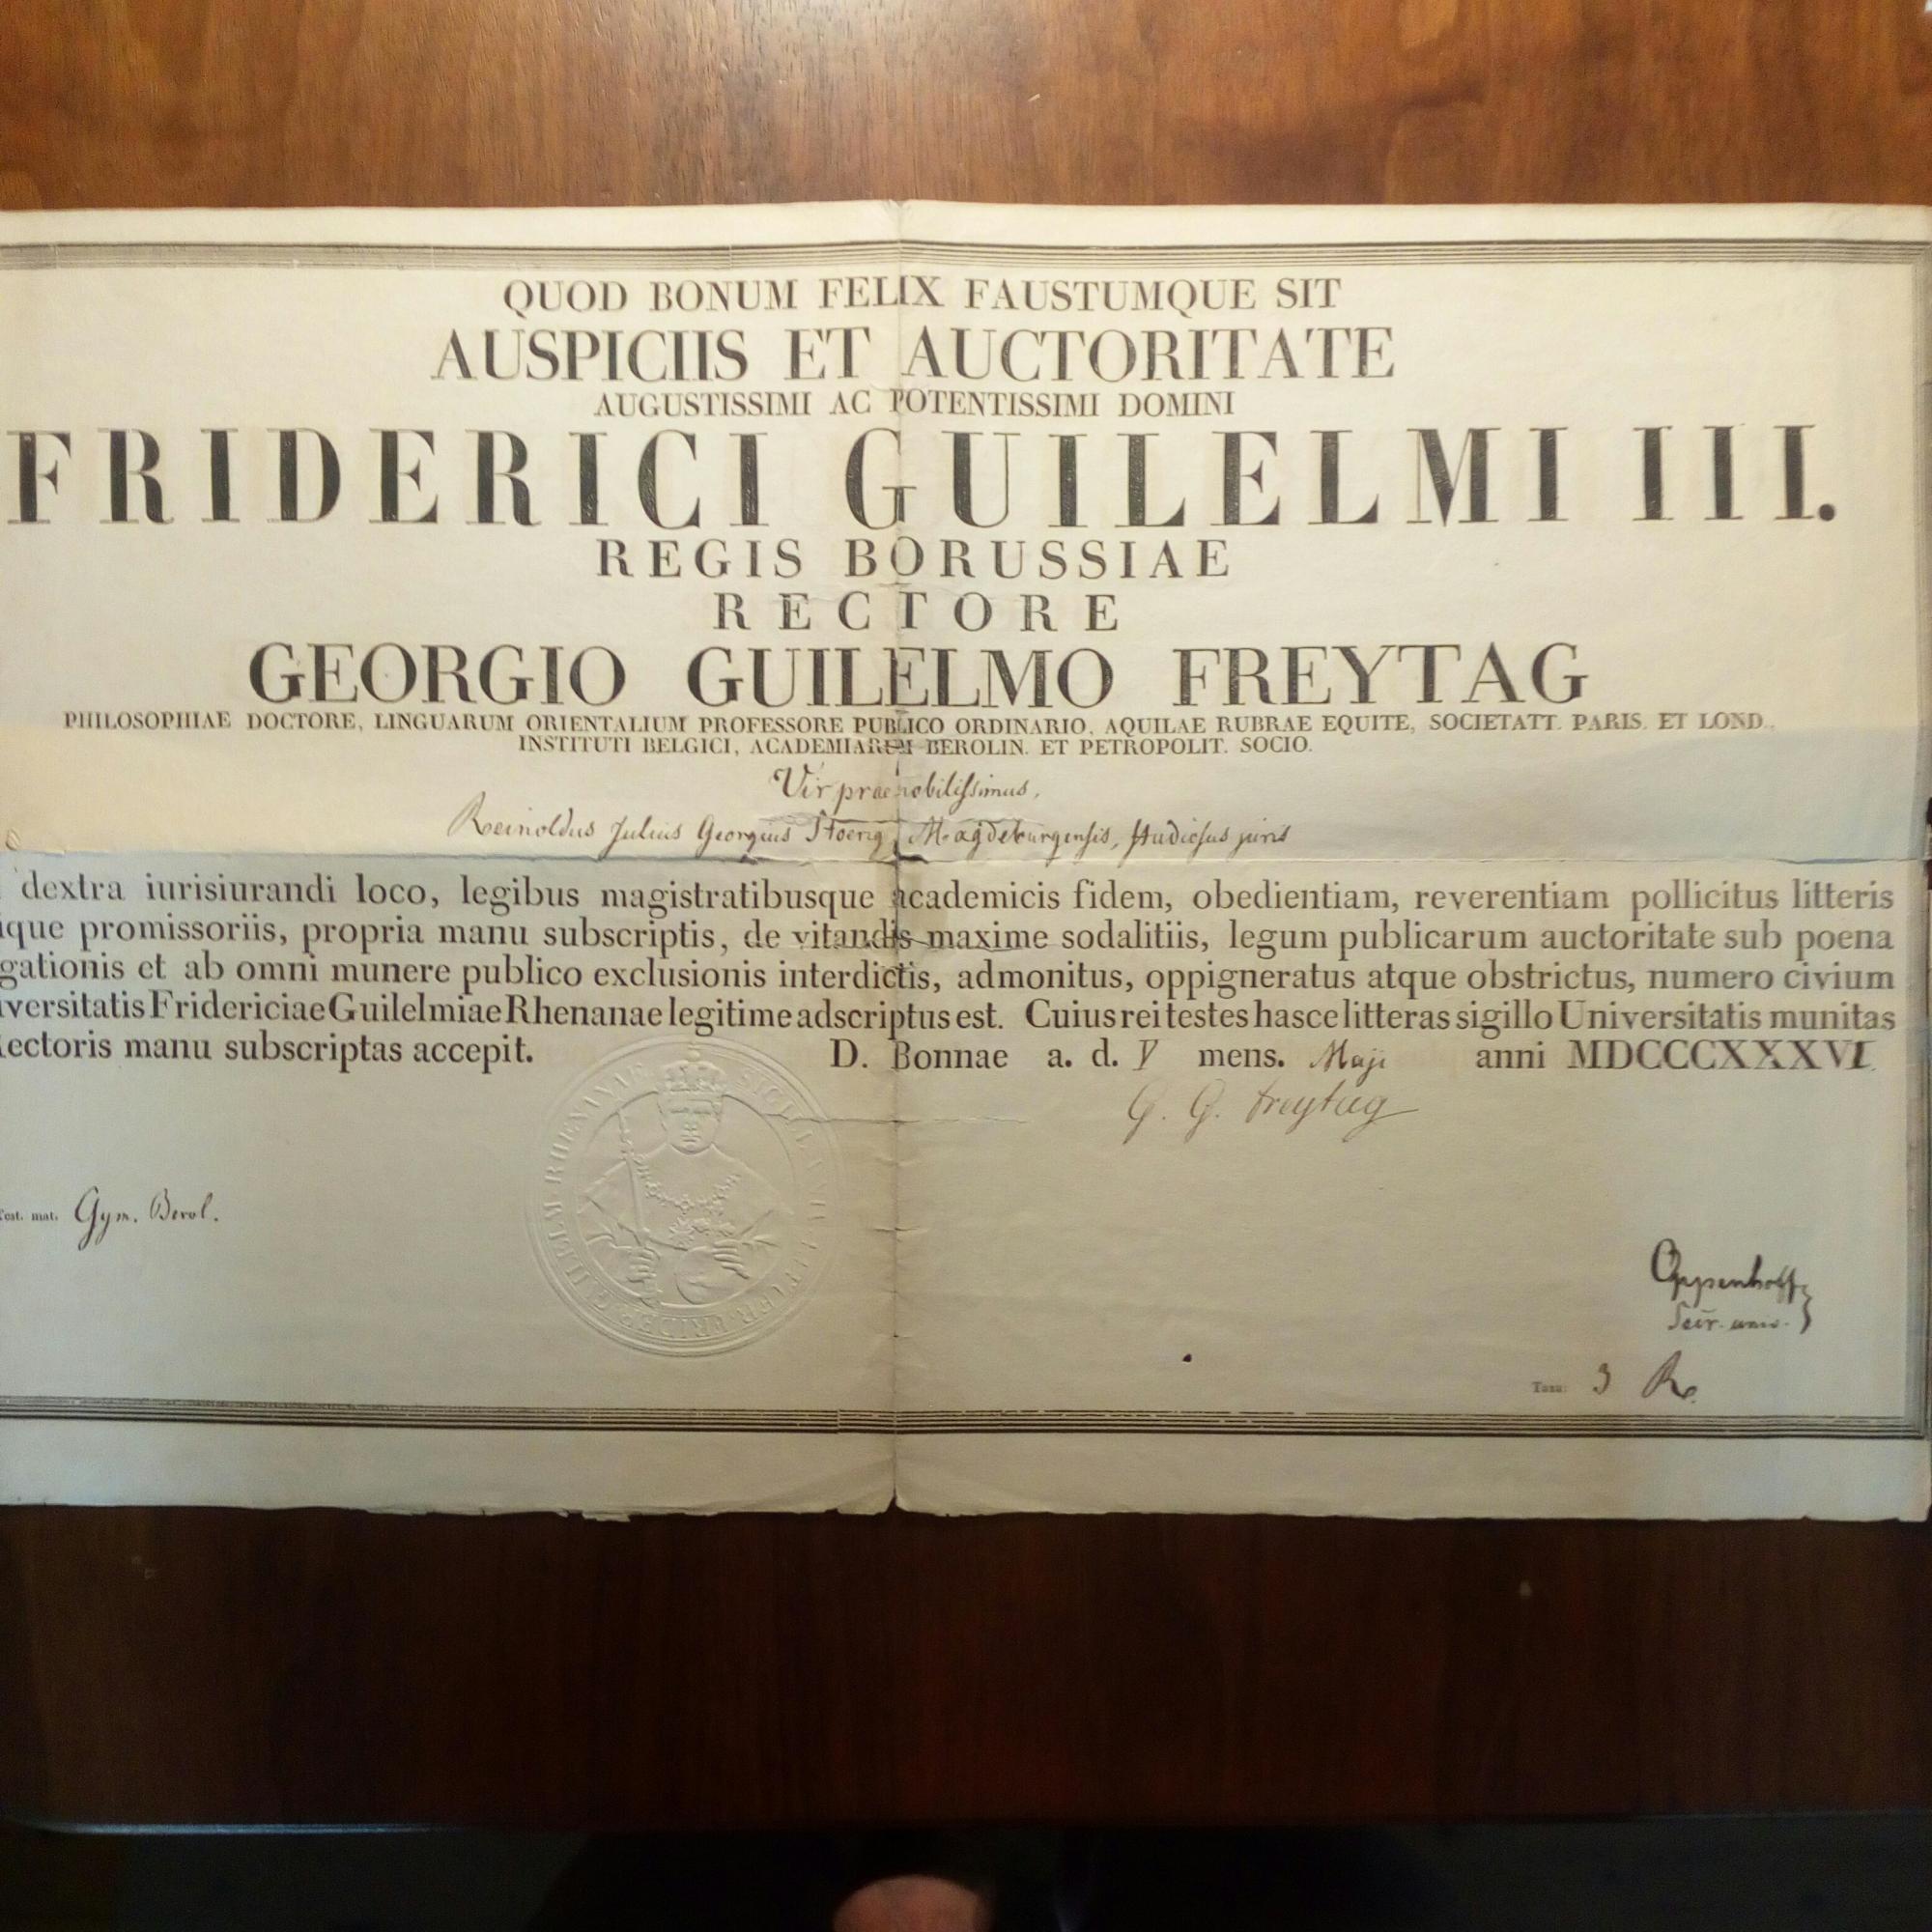 QUOD BONUM FELIX FAUSTUMQUE SIT
AUSPICIIS ET AUCTORITATE
AUGUSTISSIMI AC POTENTISSIMI DOMINI
FRIDERICI GUILELMI III.
REGIS BORUSSIAE
RECTORE
GEORGIO GUILELMO FREYTAG
PHILOSOPHIAE DOCTORE, LINGUARUM ORIENTALIUM PROFESSORE PUBLICO ORDINARIO, AQUILAE RUBRAE EQUITE, SOCIETATT. PARIS. ET LOND.,
INSTITUTI BELGICI, ACADEMIARUM BEROLIN. ET PETROPOLIT. SOCIO.
Vir praenobilissimus,
Reinoldus Julius Georgius Magdeburgensis, studiosus juris
dextra iurisiurandi loco, legibus magistratibusque academicis fidem, obedientiam, reverentiam pollicitus litteris
ique promissoriis, propria manu subscriptis, de vitandis maxime sodalitiis, legum publicarum auctoritate sub poena
gationis et ab omni munere publico exclusionis interdictis, admonitus, oppigneratus atque obstrictus, numero civium
iversitatis Fridericiae Guilelmiae Rhenanae legitime adscriptus est. Cuius rei testes hasce litteras sigillo Universitatis munitas
ectoris manu subscriptas accepit. D. Bonnae a. d. V mens. Maji anni MDCCCXXXVI.
G. G. Freytag
est. mat. Gym. Berol.
Oppenhoff
Secr. univ.
Taxa: 3